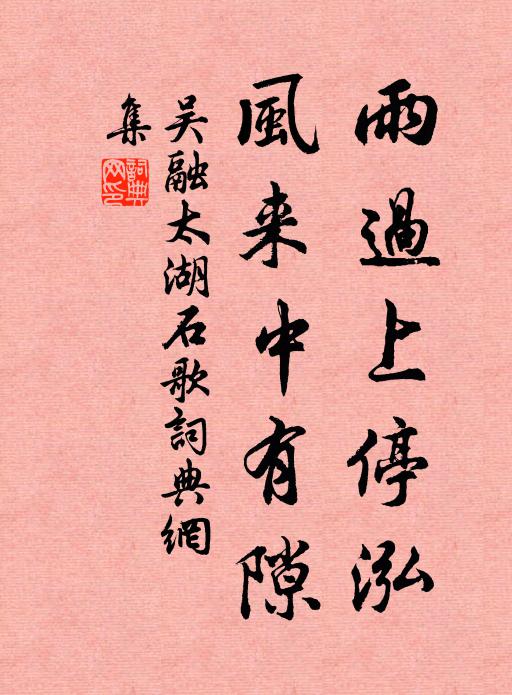 雨過上停泓
風来中有隙
吴融太湖石歌詞典網
集
詞典
网印